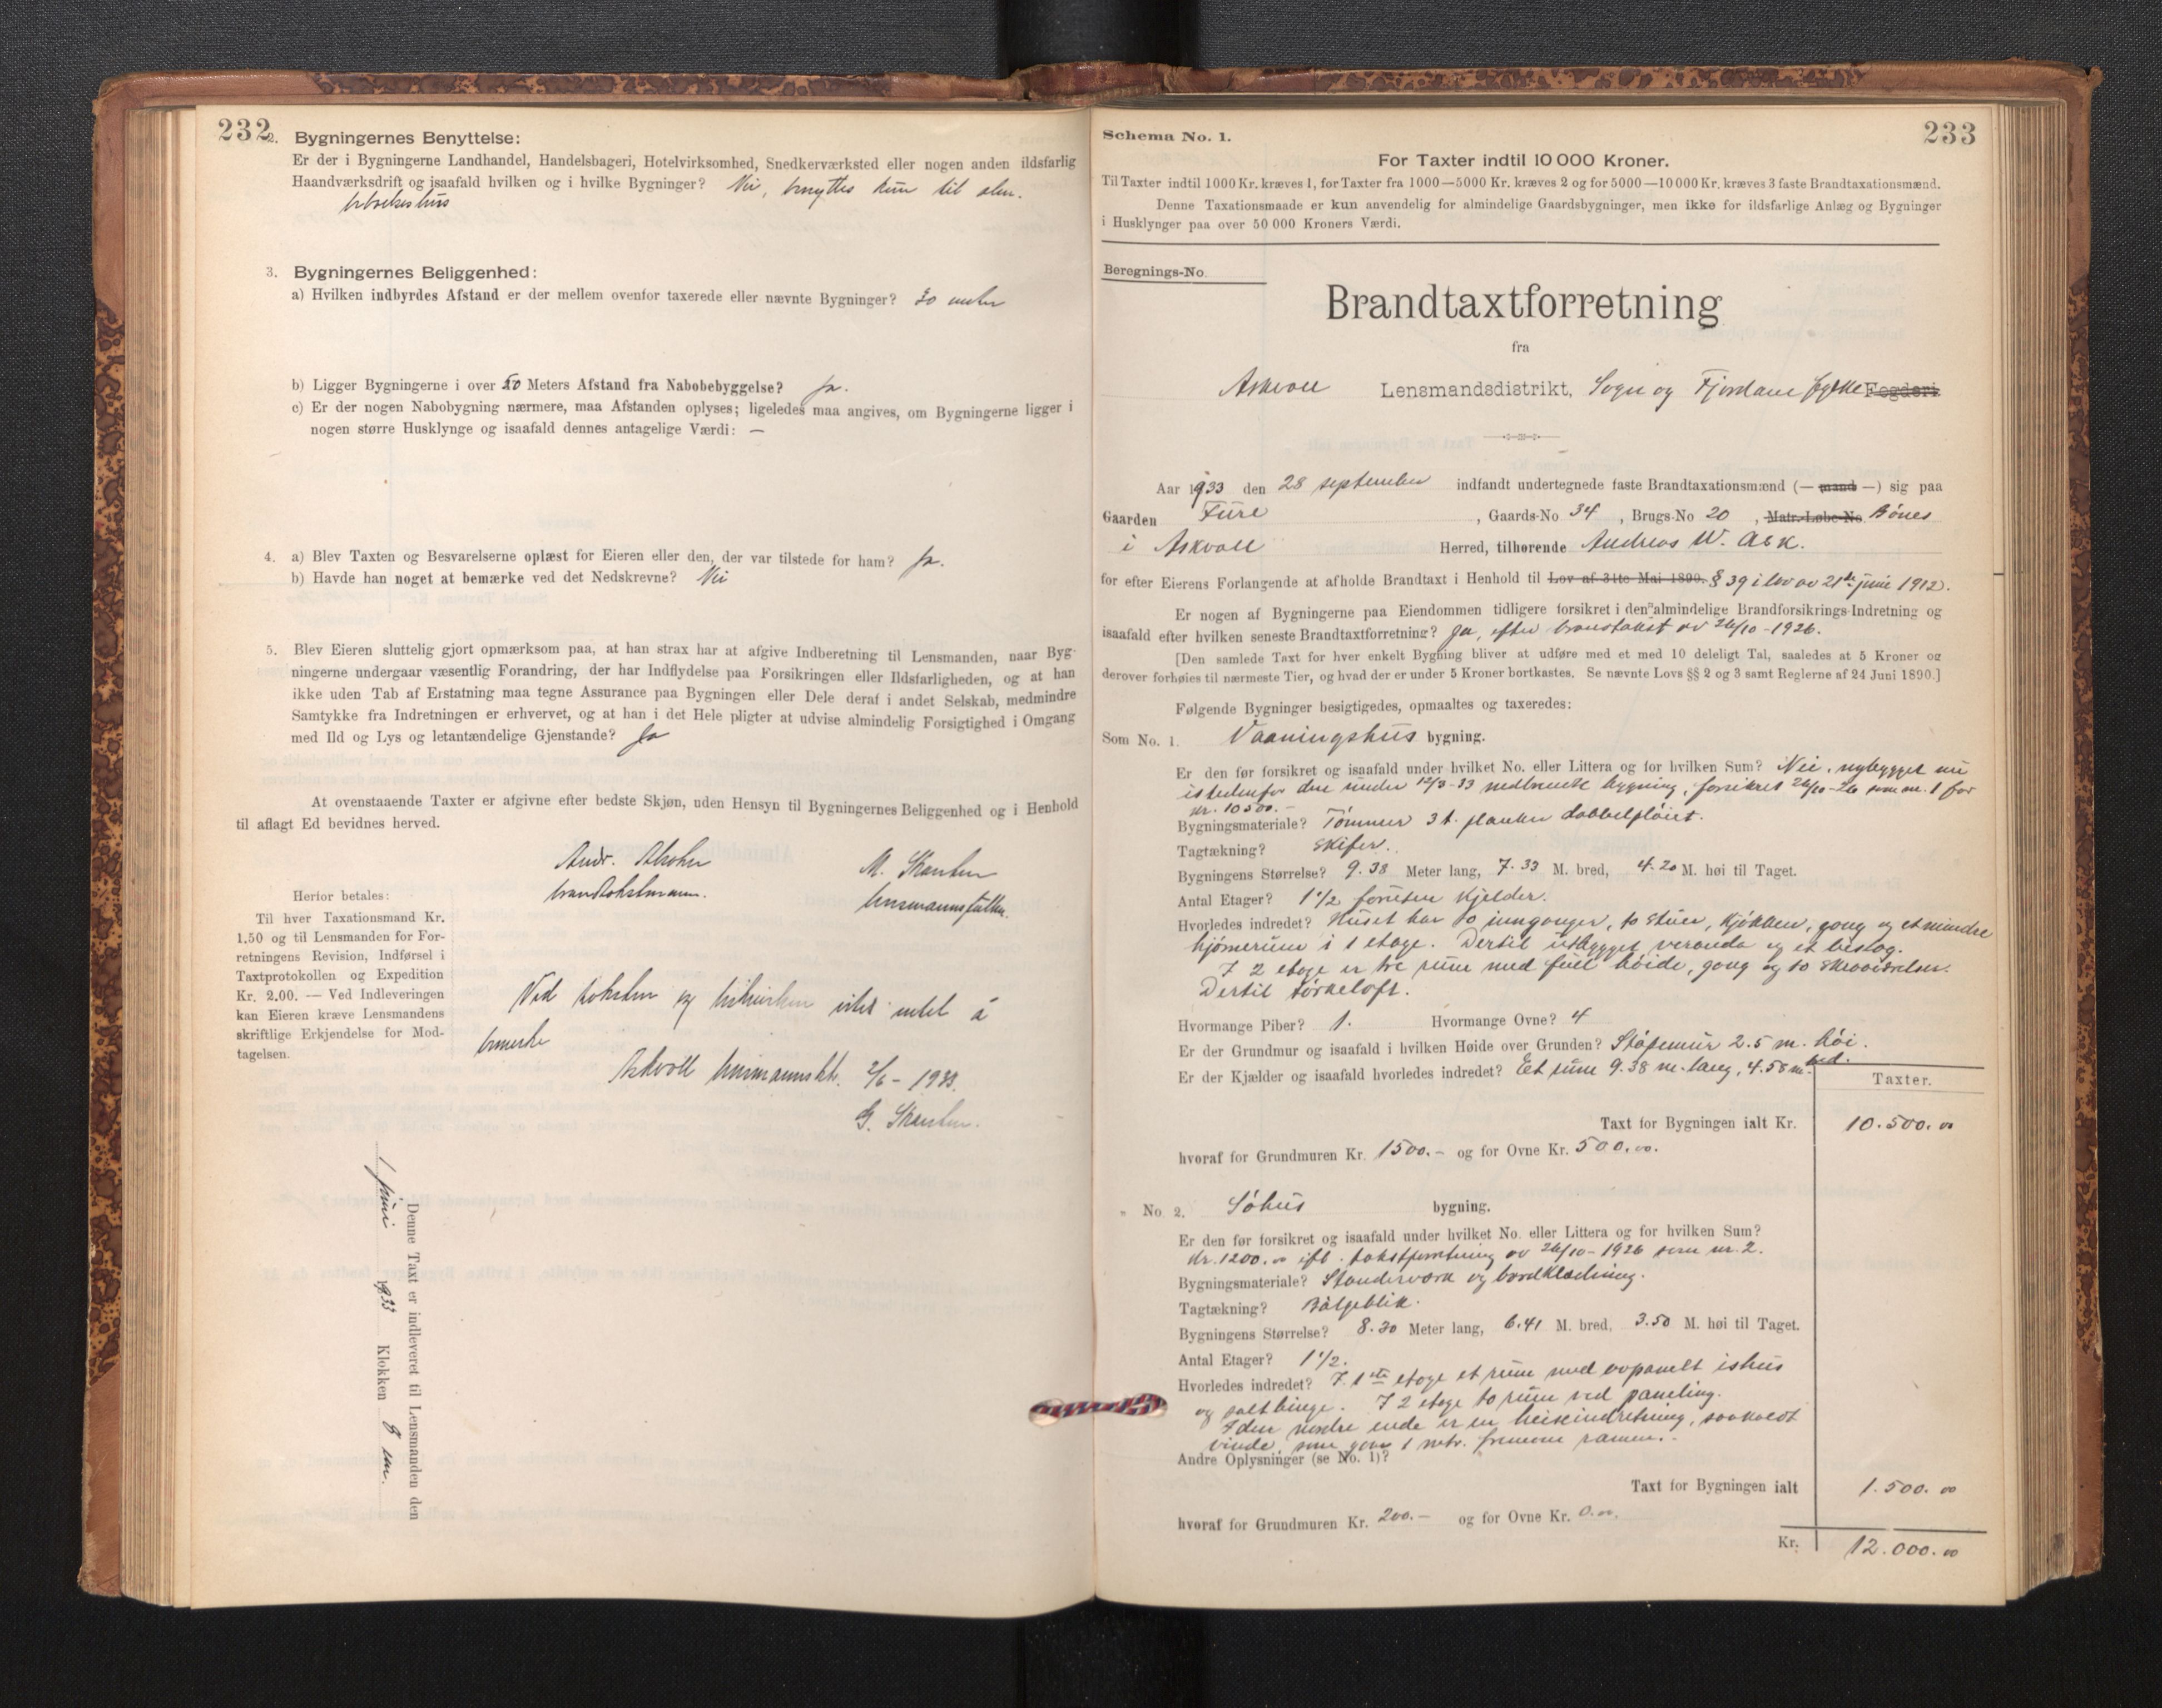 232
2. Bygningernes Benyttelse:
Er der i Bygningerne Landhandel, Handelsbageri, Hotelvirksomhed, Snedkerværksted eller nogen anden ildsfarlig
Haandværksdrift og isaafald hvilken og i hvilke Bygninger? Nei, benyttes kun til alm.
brukshus
3. Bygningernes Beliggenhed:
a) Hvilken indbyrdes Afstand er der mellem ovenfor taxerede eller nævnte Bygninger? 30 meter
b) Ligger Bygningerne i over 50 Meters Afstand fra Nabobebyggelse? Ja.
c) Er der nogen Nabobygning nærmere, maa Afstanden oplyses; ligeledes maa angives, om Bygningerne ligger i
nogen større Husklynge og isaafald dennes antagelige Værdi: —
4. a) Blev Taxten og Besvarelserne oplæst for Eieren eller den, der var tilstede for ham? Ja.
b) Havde han noget at bemærke ved det Nedskrevne? Nei
5. Blev Eieren sluttelig gjort opmærksom paa, at han strax har at afgive Indberetning til Lensmanden, naar Byg-
ningerne undergaar væsentlig Forandring, der har Indflydelse paa Forsikringen eller Ildsfarligheden, og at han
ikke uden Tab af Erstatning maa tegne Assurance paa Bygningen eller Dele deraf i andet Selskab, medmindre
Samtykke fra Indretningen er erhvervet, og at han i det Hele pligter at udvise almindelig Forsigtighed i Omgang
med Ild og Lys og letantændelige Gjenstande? Ja
At ovenstaaende Taxter er afgivne efter bedste Skjøn, uden Hensyn til Bygningernes Beliggenhed og i Henhold
til aflagt Ed bevidnes herved.
Andr.
M. Skarsten
lensmannsfullm.
Herfor betales:
Til hver Taxationsmand Kr.
1.50 og til Lensmanden for For-
retningens Revision, Indførsel i
Taxtprotokollen og Expedition
Kr. 2.00. — Ved Indleveringen
kan Eieren kræve Lensmandens
skriftlige Erkjendelse for Mod-
tagelsen.
Ved taksten og beskrivelsen intet å
bemerke
Askvoll lensmannsktr. 2/6 - 1933.
Skarsten.
Denne Taxt er indleveret til Lensmanden den
1 juni 1933 Klokken 8 em.
233
Schema No. 1.
For Taxter indtil 10 000 Kroner.
Til Taxter indtil 1000 Kr. kræves 1, for Taxter fra 1000—5000 Kr. kræves 2 og for 5000—10 000 Kr. kræves 3 faste Brandtaxationsmænd.
Denne Taxationsmaade er kun anvendelig for almindelige Gaardsbygninger, men ikke for ildsfarlige Anlæg og Bygninger
i Husklynger paa over 50 000 Kroners Værdi.
Beregnings-No.
Brandtaxtforretning
fra
Askvoll Lensmandsdistrikt, Sogn og Fjordane fylke Fogderi
Aar 1933 den 28 september indfandt undertegnede faste Brandtaxationsmænd (— mand —) sig paa
Gaarden Füre, Gaards-No 34, Brugs-No 20, Matr.-Løbe-No Bönes
i Askvoll Herred, tilhørende Andreas W. Ask.
for efter Eierens Forlangende at afholde Brandtaxt i Henhold til Lov af 31te Mai 1899. § 39 i lov av 21de juni 1912.
Er nogen af Bygningerne paa Eiendommen tidligere forsikret i den almindelige Brandforsikrings-Indretning og
isaafald efter hvilken seneste Brandtaxtforretning? Ja, efter branntakst av 26/10-1926.
[Den samlede Taxt for hver enkelt Bygning bliver at udføre med et med 10 deleligt Tal, saaledes at 5 Kroner og
derover forhøies til nærmeste Tier, og hvad der er under 5 Kroner bortkastes. Se nævnte Lovs §§ 2 og 3 samt Reglerne af 24 Juni 1890.]
Følgende Bygninger besigtigedes, opmaaltes og taxeredes:
Som No. 1. Vaaningshus bygning.
Er den før forsikret og isaafald under hvilket No. eller Littera og for hvilken Sum? Nei, nybygget nu
istedenfor den under 12/3-33 nedbrente bygning, forsikret 26/10-26 som nr. 1 for
kr. 10500.-
Bygningsmateriale? Tömmer 3 t. planker dobbelpløiet.
Tagtækning? Skifer.
Bygningens Størrelse? 9.38 Meter lang, 7.33 M. bred, 4.20 M. høi til Taget.
Antal Etager? 1 1/2 foruten kjelder.
Hvorledes indredet? Huset har to innganger, to stuer, kjökken, gang og et mindre
hjörnerum i 1 etage. Dertil utbygget veranda og et bislag.
I 2 etage er tre rum med full höide, gang og to skraaværelser.
Dertil törkeloft.
Hvormange Piber? 1. Hvormange Ovne? 4
Er der Grundmur og isaafald i hvilken Høide over Grunden? Stöpemur 2.5 m. höi.
Er der Kjælder og isaafald hvorledes indredet? Et rum 9.38 m. lang, 4.58 m. bred.
Taxter.
Taxt for Bygningen ialt Kr. 10.500.00
hvoraf for Grundmuren Kr. 1500.- og for Ovne Kr. 500.00.
" No. 2. Söhus bygning.
Er den før forsikret og isaafald under hvilket No. eller Littera og for hvilken Sum?
Kr. 1200.00 ifl. takstforretning av 26/10-1926 som nr. 2.
Bygningsmateriale? Standerverk og bordklædning.
Tagtækning? Bölgeblik.
Bygningens Størrelse? 8.30 Meter lang, 6.41 M. bred, 3.50 M. høi til Taget.
Antal Etager? 1 1/2.
Hvorledes indredet? I 1ste etage et rum med avpanelt ishus
og saltbinge. I 2 etage to rum ved paneling.
I den nordre ende er en heiseindretning, saakaldt
vinde, som gaar 1 mtr.
Andre Oplysninger (se No. 1)?
Taxt for Bygningen ialt 1.500.00
hvoraf for Grundmuren Kr. 200.- og for Ovne Kr. 0.00.
Kr. 12.000.00